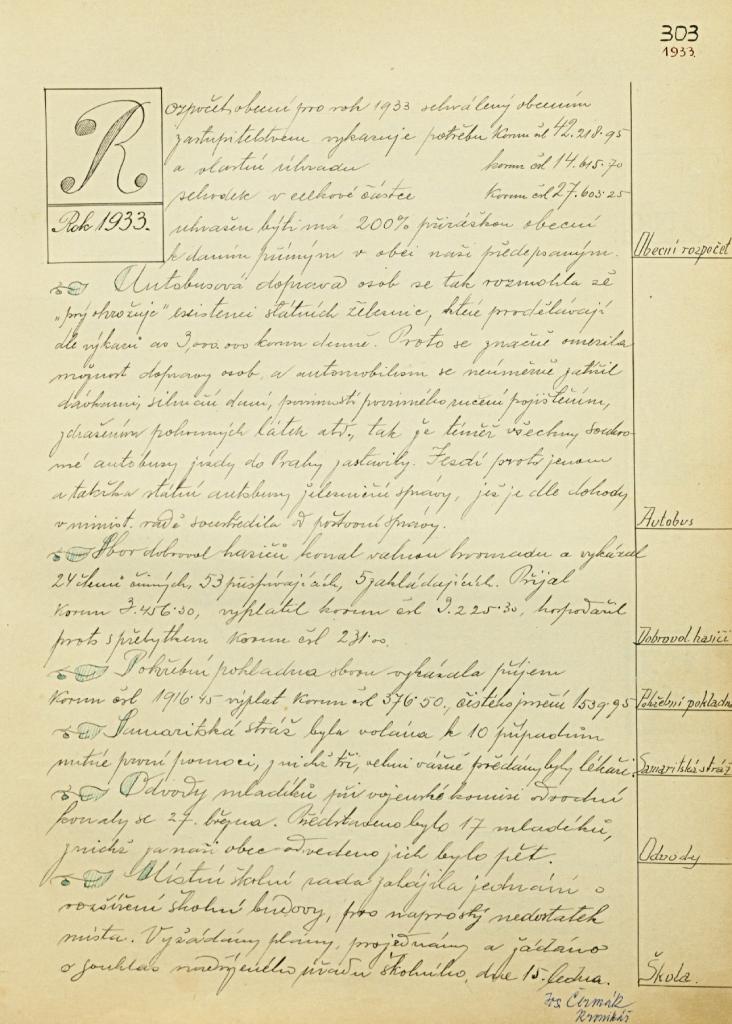 303
1933.
Rozpočet obecní pro rok 1933 schválený obecním
zastupitelstvem vykazuje potřebu korun čsl 42.218.95
a vlastní úhradu korun čsl 14.615.70
schodek v celkové částce korun čsl 27.603.25
Rok 1933.
uhražen býti má 200% přirážkou obecní
k daním přímým v obci naší předepsaným.
Obecní rozpočet
Autobusová doprava osob se tak rozmohla že
„prý ohrožuje" existenci státních železnic, které prodělávají
dle výkazů as 3,000.000 korun denně. Proto se značně omezila
možnost dopravy osob, a automobilism se neúměrně zatížil
dávkami, silniční daní, povinností povinného ručení pojištěním,
zdražením pohonných látek atd., tak že téměř všechny soukro-
mé autobusy jízdy do Prahy zastavily. Jezdí proto jenom
a takřka státní autobusy železniční správy, jež je dle dohody
v minist. radě soustředila od poštovní správy.
Autobus
Sbor dobrovol hasičů konal valnou hromadu a vykázal
24 členů činných, 53 přispívajících, 5 zakládajících. Přijal
korun 3.456.30, vyplatil korun čsl 3.225.30, hospodařil
proto s přebytkem korun čsl 231.00.
Dobrovol. hasiči
Pohřební pokladna sboru vykázala příjem
korun čsl 1916.45 výplat korun čsl 376.50., čistého jmění 1539.95
Pohřební pokladna
Samaritská stráž byla volána k 10 případům
nutné první pomoci, z nichž tři, velmi vážné předány byly lékaři.
Samaritská stráž
Odvody mladíků při vojenské komisi odvodní
konaly se 27. března. Představeno bylo 17 mladíků,
z nichž za naši obec odvedeno jich bylo pět.
Odvody
Místní školní rada zahájila jednání o
rozšíření školní budovy, pro naprostý nedostatek
místa. Vyžádány plány, projednány a žádáno
o souhlas nadřízeného úřadu školního, dne 15. ledna.
Škola.
Jos. Čermák
Kronikář